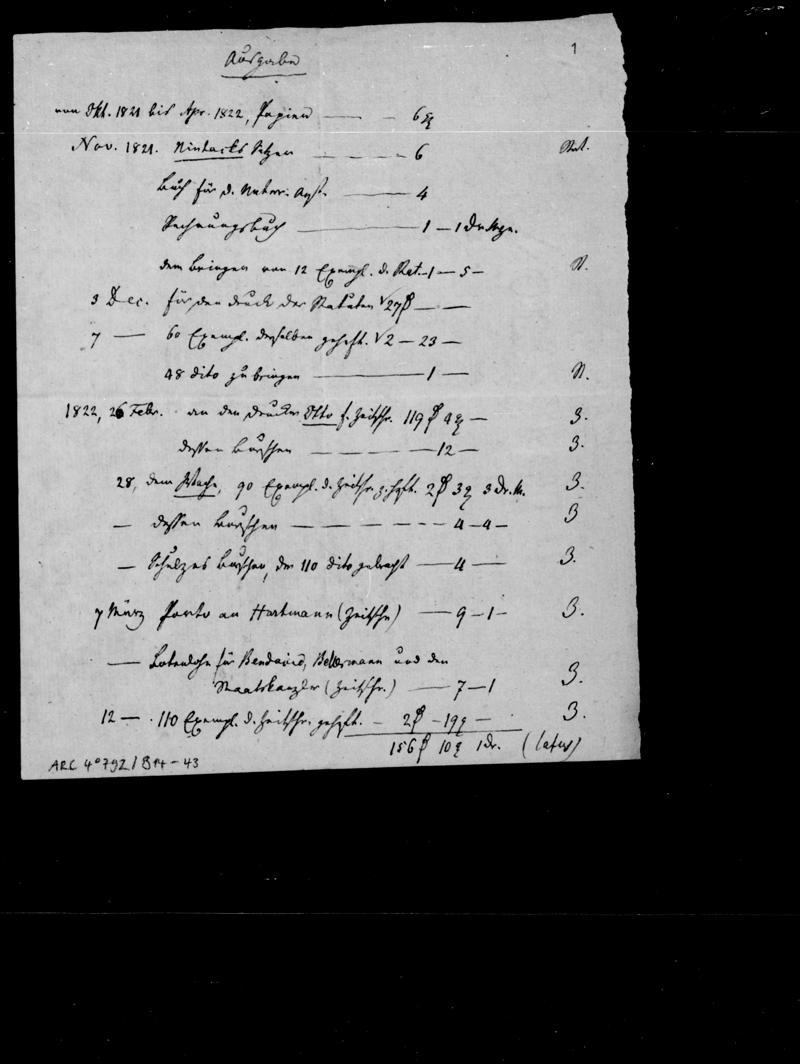 1
Ausgabe
von Okt. 1821 bis Apr. 1822, Papier — — 6 g
Nov. 1821. Sitzen — — — — 6 Stat.
Buch für d. Unterr. Anst. — 4
Rechnungsbuch — 1 — 1 Dr.
dem bringen von 12 Exempl. d. Stat. — 1 — 5 — St.
3 Dec. für den druck der Statuten √ 27 ₰ — —
7 — 60 Exempl. derselben geheft. √ 2 — 23 —
48 dito zu bringen — 1 — St.
1822, 26 Febr. an den Drucker Otto f. Zeitschr. 119 ₰ 4 g — 3.
dessen Burschen — — — — 12 — 3.
28, dem 90 Exempl. d. Zeitschr. z. heft. 2 ₰ 3 g 3 Dr. 3.
— dessen Burschen — — — — 4 — 4 — 3
— Schulzes Burschen, der 110 dito gebracht — 4 — 3.
7 März Porto an Hartmann (Zeitschr.) — 9 — 1 — 3.
— Botenlohn für Bendavid, Bellermann und den
Staatskanzler (Zeitschr.) — 7 — 1 3.
12 — 110 Exempl. d. Zeitschr. geheft. — 2 ₰ — 19 g — 3.
156 ₰ 10 g 1 Dr. (latus)
ARC 4°792/B14-43